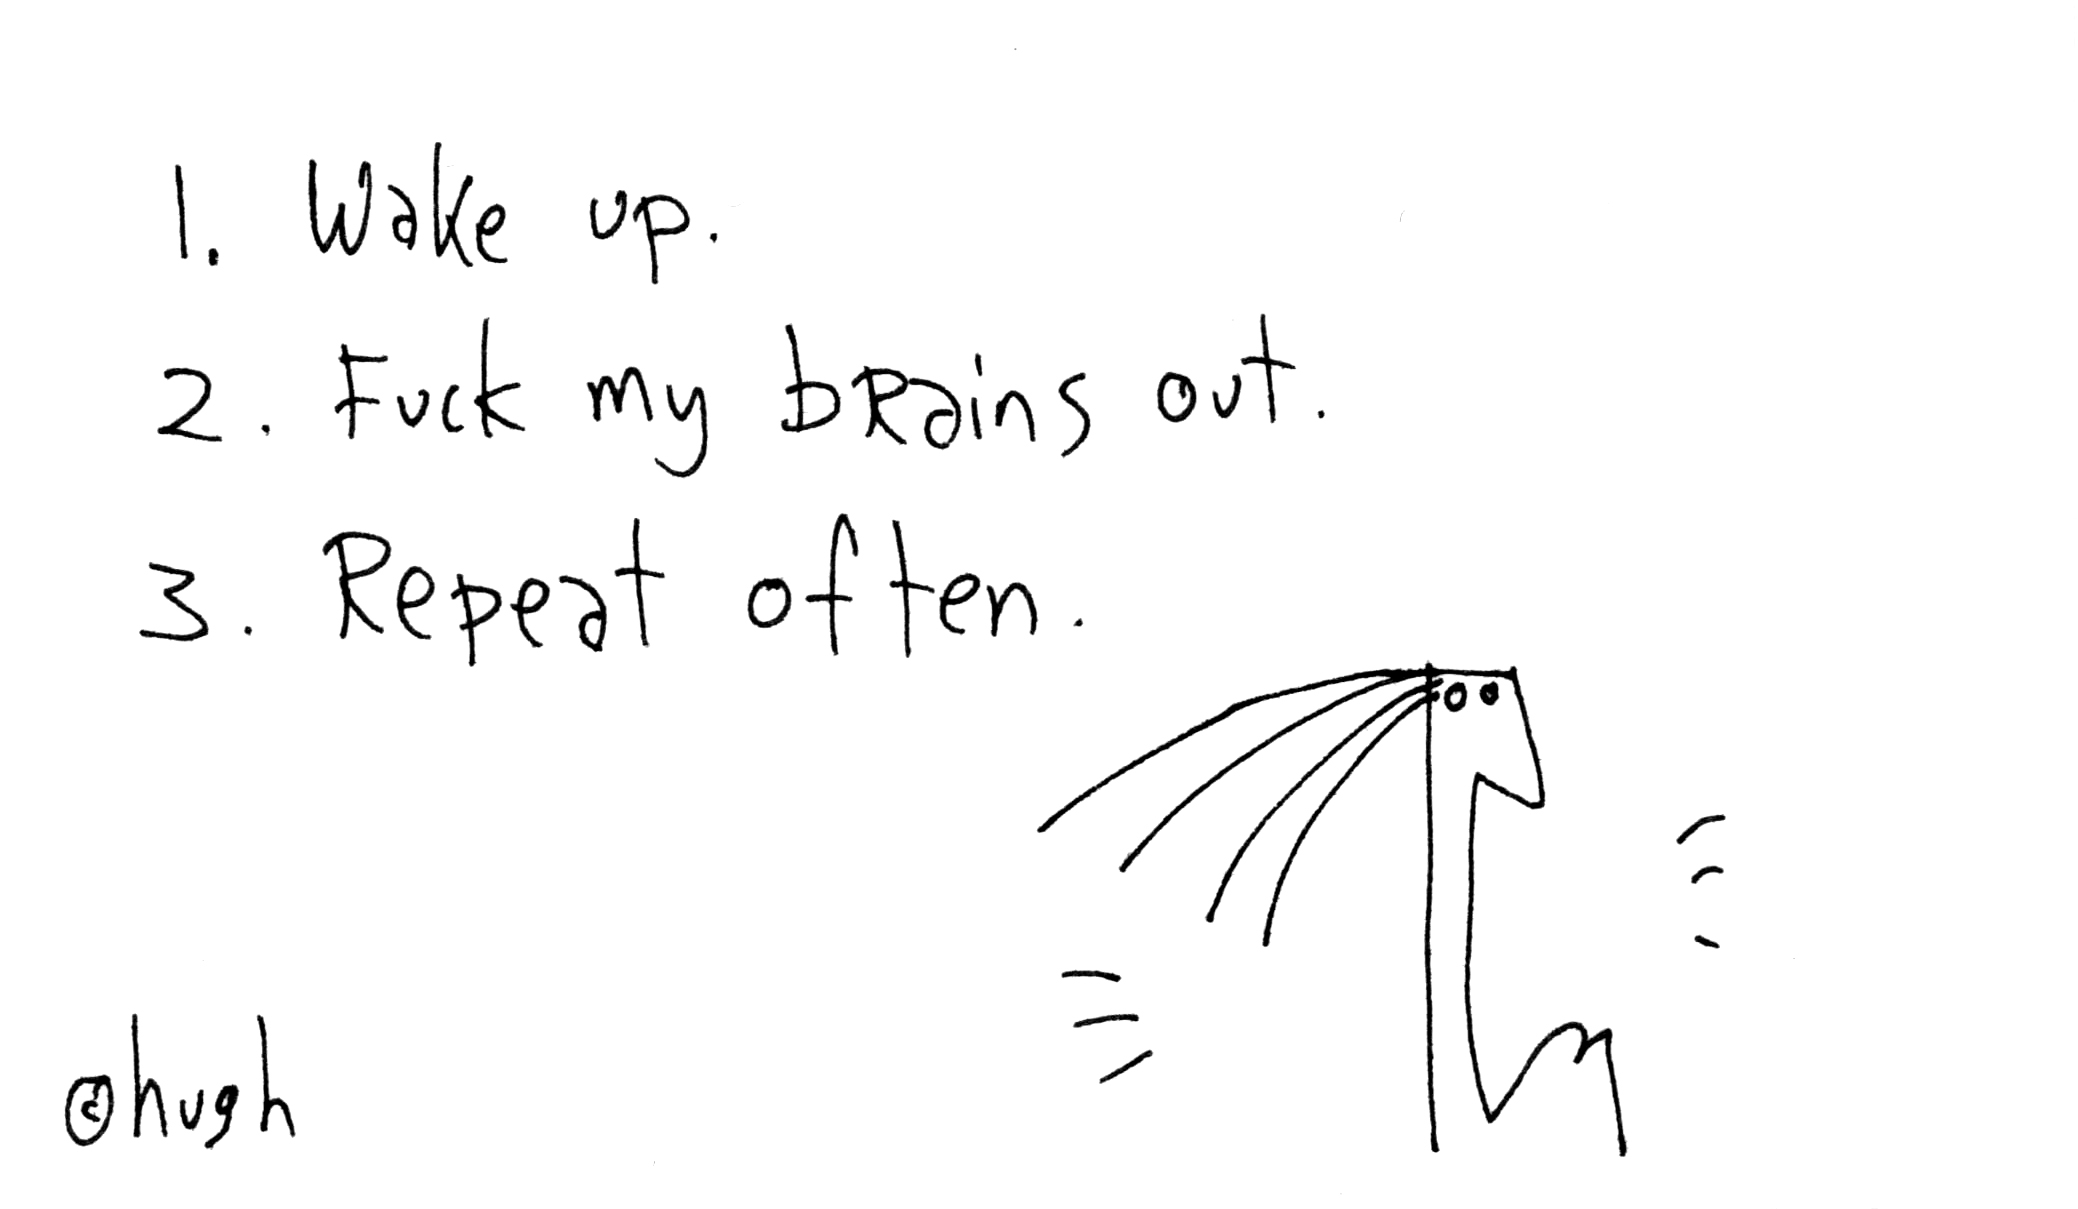 1. Wake up.
2. Fuck my brains out.
3. Repeat often.
©hugh